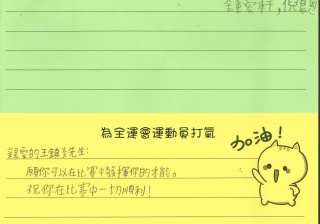 為全運會運動員打氣
加油！
親愛的王鎮炎先生：
願你可以在比賽中發揮你的才能。
祝你在比賽中一切順利！